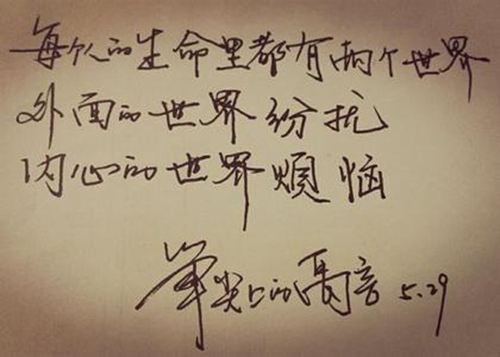 每个人的生命里都有两个世界
外面的世界纷扰
内心的世界煩恼
筆尖上的高音 5.29